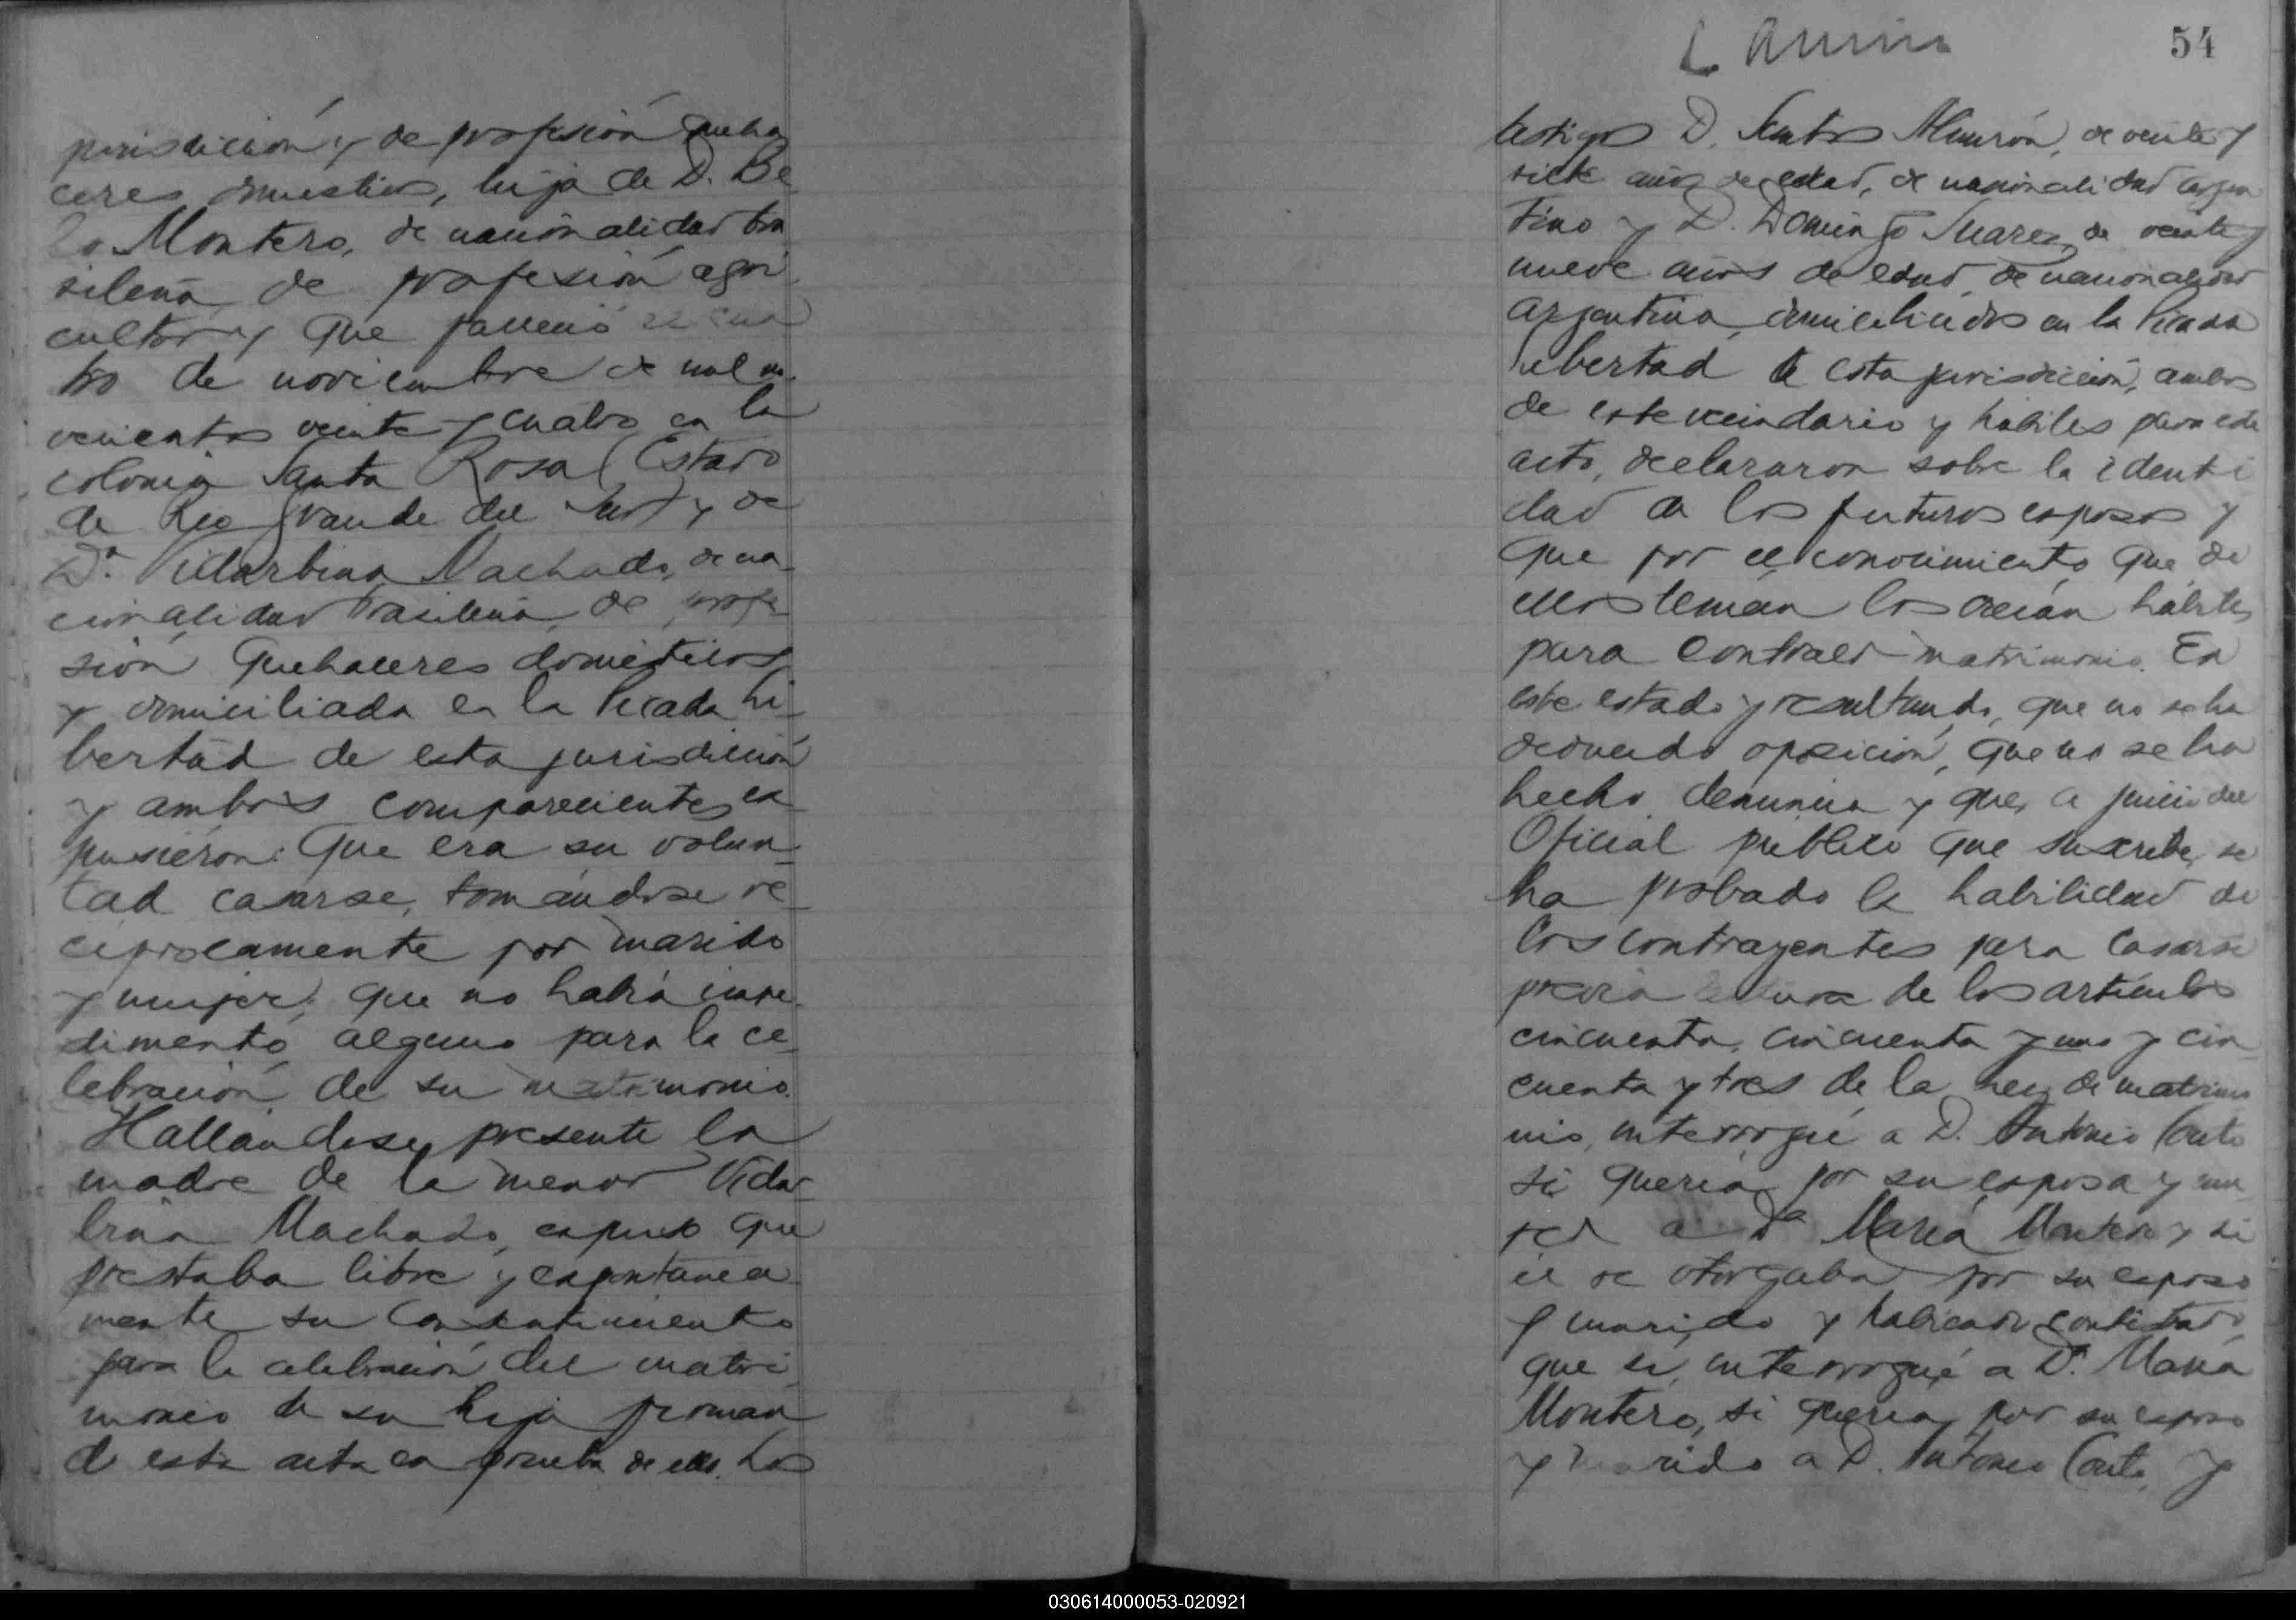 jurisdición y de profesión queha
ceres domesticos, hija de D. Be
lo Montero, de nacionalidad bra
sileña de profesión agri
cultor y que falleció el cua
tro de noviembre de mil no
vecientos veinte y cuatro en la
colonia Santa Rosa (Estado
de Rio Grande del Sur) y de
Dª. Vidarbina Machado, de na
cionalidad brasileña, de profe
sión quehaceres domésticos
y domiciliada en la Picada Li
bertad de esta jurisdición
y ambos comparecientes ex
pusieron: Que era su volun
tad casarse, tomándose re
ciprocamente por marido
y mujer; que no había impe
dimento alguno para la ce
lebración de su matrimonio.
Hallandose presente la
madre de la menor Vidar
bina Machado, expuso que
prestaba libre y espontanea
mente su consentimiento
para la celebración del matri
monio de su hija firman
do esta acta en prueba de ello. Los
54
testigos D. Santos Almirón, de veinte y
siete años de edad, de nacionalidad argen
tino y D. Domingo Suarez, de veinte y
nueve años de edad, de nacionalidad
argentina, domiciliados en la Picada
Libertad de esta jurisdicción, ambos
de este vecindario y hábiles para este
acto, declararon sobre la identi
dad de los futuros esposos y
que por el conocimiento que de
ellos tenían los creían hábiles
para contraer matrimonio. En
este estado y resultando, que no se ha
deducido oposición, que no se ha
hecho denuncia y que, a juicio del
Oficial público que suscribe, se
ha probado la habilidad de
los contrayentes para casarse
previa lectura de los artículos
cincuenta, cincuenta y uno y cin
cuenta y tres de la Ley de matrimo
nio, interrogué a D. Antonio Couto
si quería por su esposa y mu
jer a Dª María Montero y si
él se otorgaba por su esposo
y marido y habiendo contestado
que si, interrogué a Dª. María
Montero, si quería por su esposo
y marido a D. Antonio Couto, y
030614000053-020921